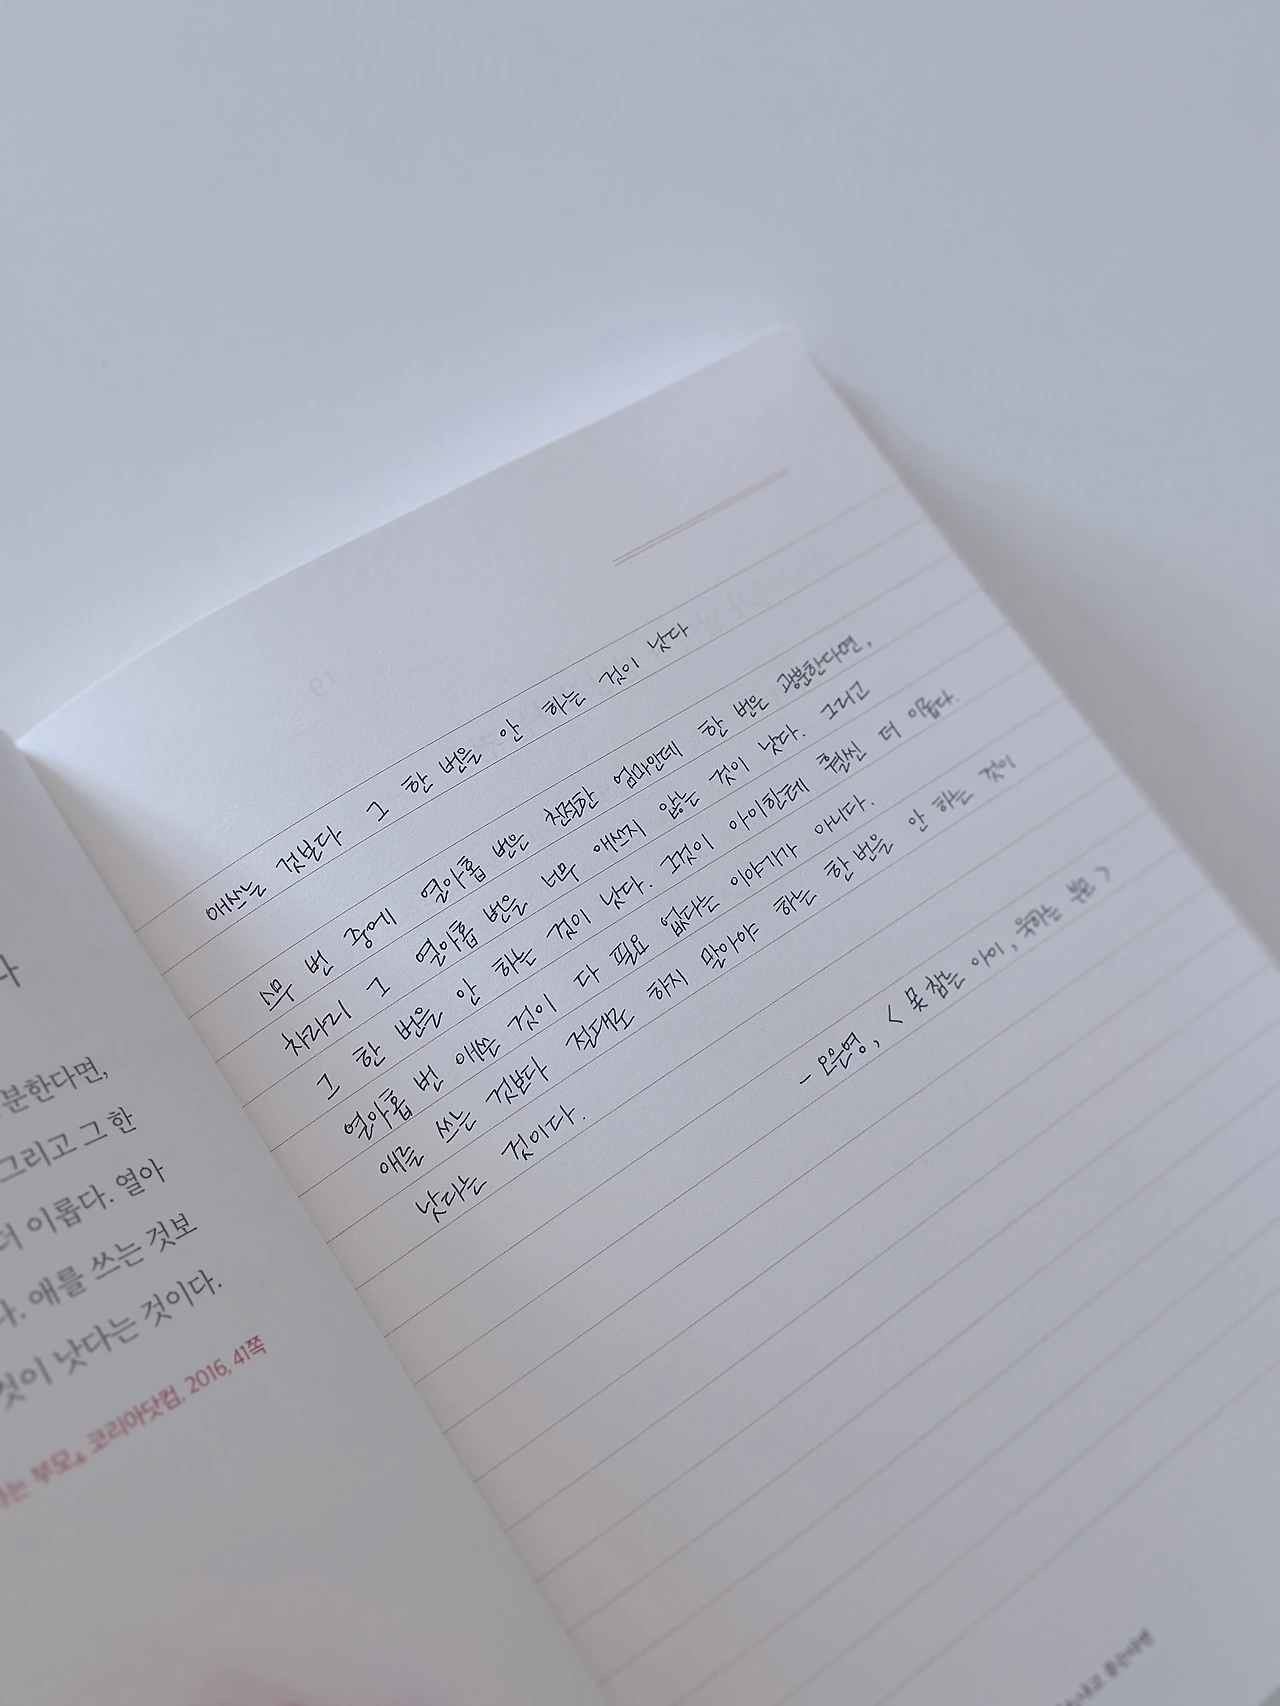 다
분한다면,
그리고 그 한
더 이롭다. 열아
다. 애를 쓰는 것보
것이 낫다는 것이다.
하는 부모』 코리아닷컴, 2016, 41쪽
애쓰는 것보다 그 한 번을 안 하는 것이 낫다
스무 번 중에 열아홉 번은 친절한 엄마인데 한 번은 광분한다면,
차라리 그 열아홉 번을 너무 애쓰지 않는 것이 낫다. 그리고
그 한 번을 안 하는 것이 낫다. 그것이 아이한테 훨씬 더 이롭다.
열아홉 번 애쓴 것이 다 필요 없다는 이야기가 아니다.
애를 쓰는 것보다 절대로 하지 말아야 하는 한 번을 안 하는 것이
낫다는 것이다.
- 오은영, <못 참는 아이, 욱하는 부모>